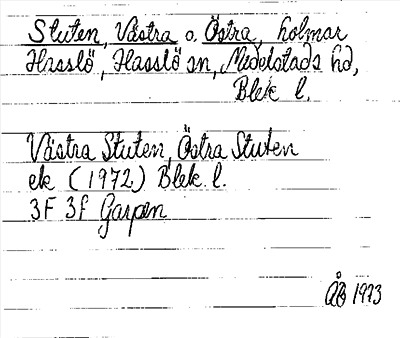 Stuten, Västra o. Östra, holmar
Hasslö, Hasslö sn, Medelstads hd,
Blek l.
Västra Stuten, Östra Stuten
ek (1972) Blek. l.
3F 3f Garpen
ÅB 1973